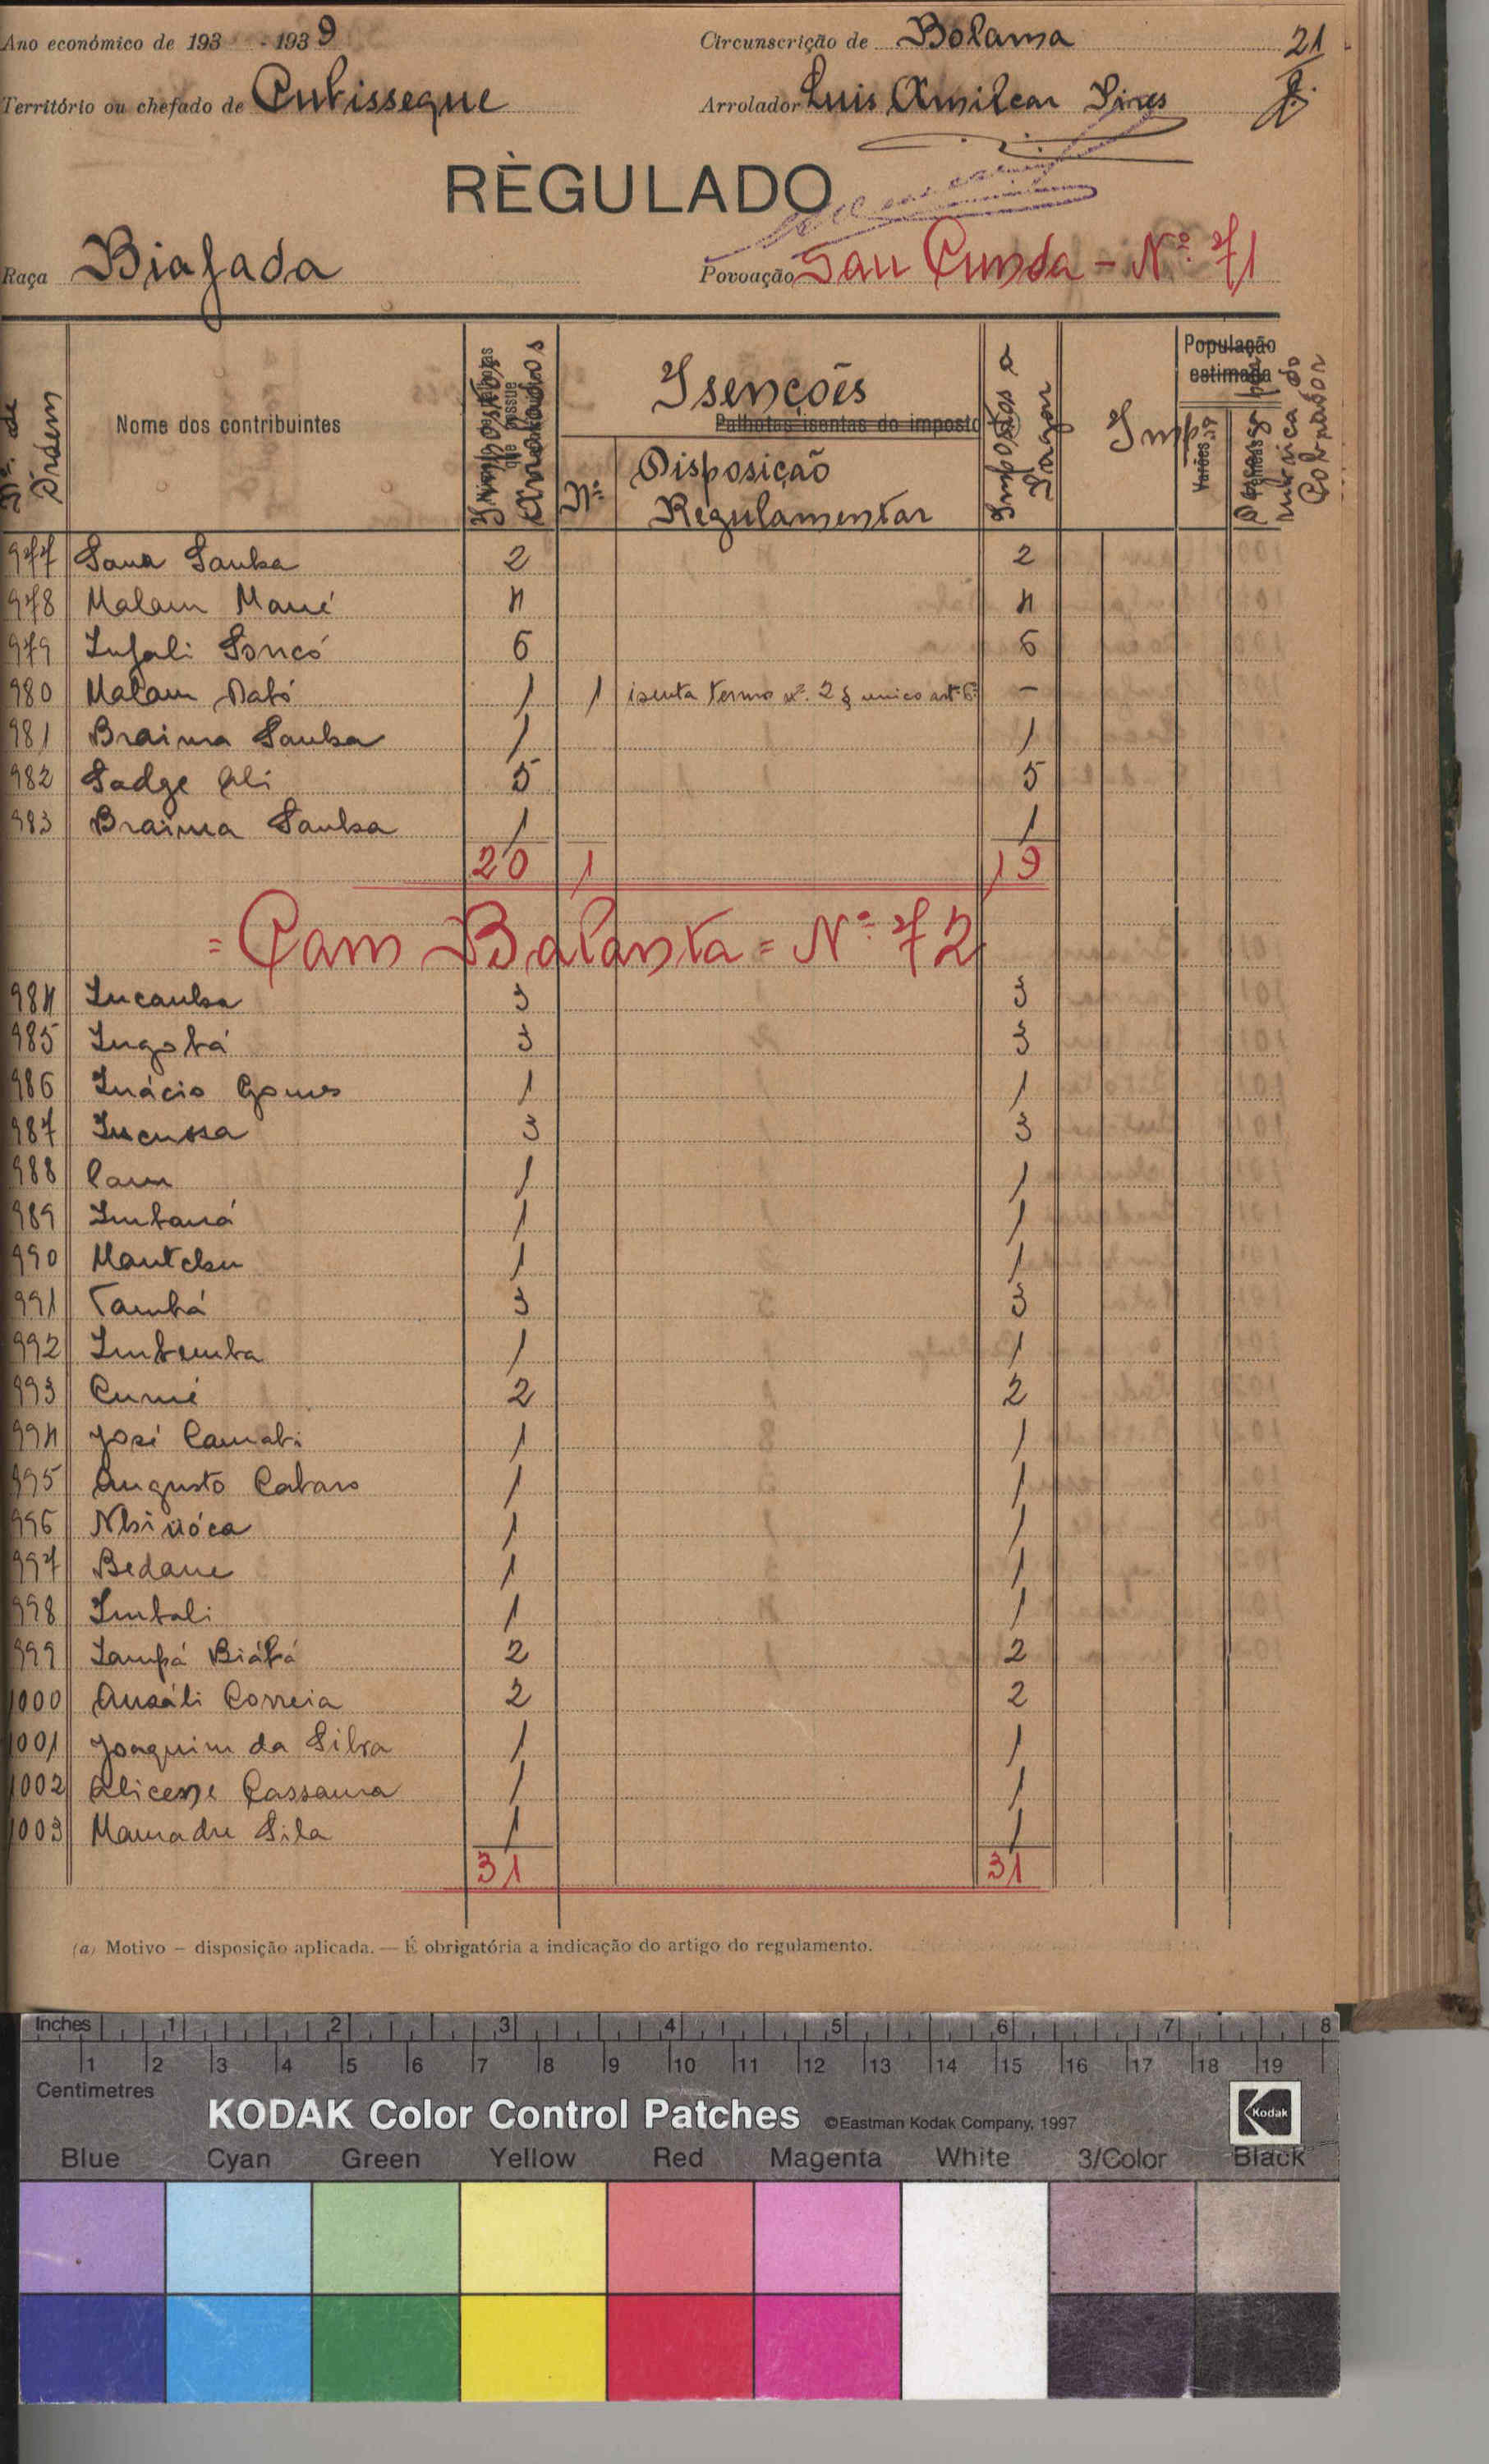 Ano económico de 193 - 1939
Circunscrição de Bolama
21
Território ou chefado de Cubisseque
Arrolador Luis Amilcar Pires
RÈGULADO
Raça Biafada
Povoação San Cunda - Nº. 71
Nº. de Ordem
Nome dos contribuintes
Impostos Arrolados
Isenções
Palhotas isentas do imposto
Nº
Disposição Regulamentar
Impostos a Pagar
Imp
População estimada
Varões
rubrica do Cobrador
977 Sana Sanha 2 2
978 Malam Mané 4 4
979 Infali Soncó 6 6
980 Malam Dabó 1 1 isenta termo nº. 2 § unico artº 6º -
981 Braima Sanha 1 1
982 Sadge Ali 5 5
983 Braima Sanha 1 1
20 1 19
= Cam Balanta = Nº. 72
984 Incanha 3 3
985 Ingobá 3 3
986 Inácio Gomes 1 1
987 Incussa 3 3
988 Cam 1 1
989 Imbaná 1 1
990 Mantchu 1 1
991 Tambá 3 3
992 Imbemba 1 1
993 Cumé 2 2
994 José Camabi 1 1
995 Augusto Cabaro 1 1
996 Nhinóca 1 1
997 Bedane 1 1
998 Imbali 1 1
999 Sampá Biábá 2 2
1000 Ansáli Correia 2 2
1001 Joaquim da Silva 1 1
1002 Alicene Cassama 1 1
1003 Mamadu Sila 1 1
31 31
(a) Motivo – disposição aplicada. — É obrigatória a indicação do artigo do regulamento.
Inches 1 2 3 4 5 6 7 8
1 2 3 4 5 6 7 8 9 10 11 12 13 14 15 16 17 18 19
Centimetres
KODAK Color Control Patches ©Eastman Kodak Company, 1997 Kodak
Blue Cyan Green Yellow Red Magenta White 3/Color Black